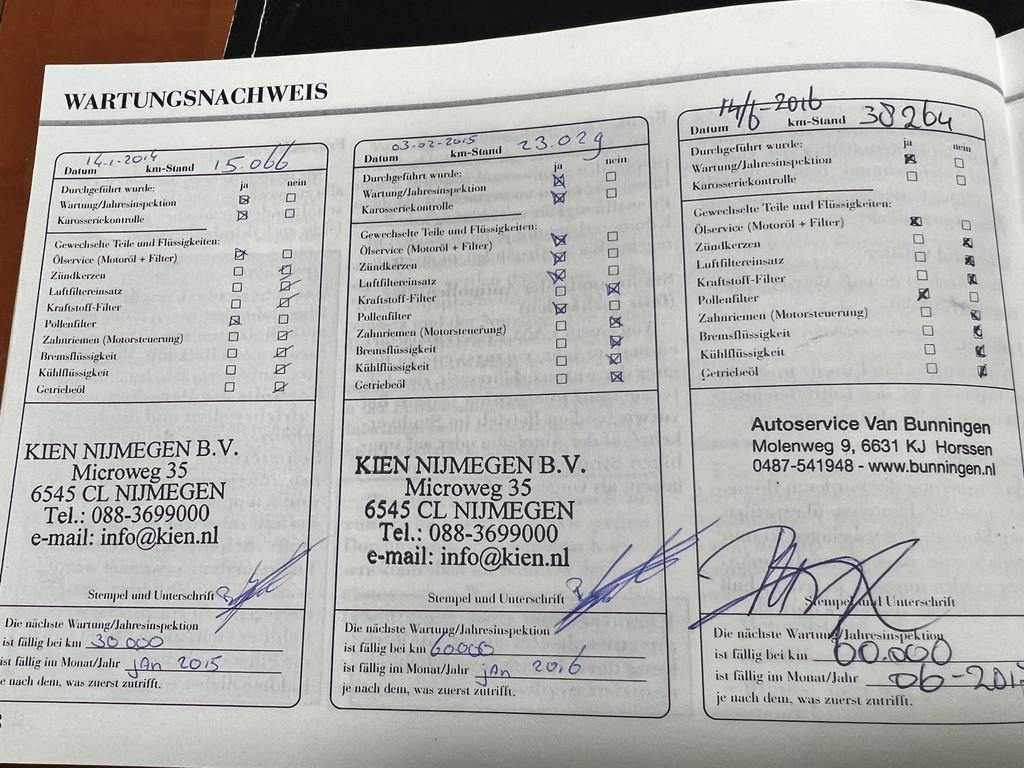 WARTUNGSNACHWEIS
Datum 14-1-2014 km-Stand 15.066
Durchgeführt wurde: ja nein
Wartung/Jahresinspektion
Karosseriekontrolle
Gewechselte Teile und Flüssigkeiten:
Ölservice (Motoröl + Filter)
Zündkerzen
Luftfiltereinsatz
Kraftstoff-Filter
Pollenfilter
Zahnriemen (Motorsteuerung)
Bremsflüssigkeit
Kühlflüssigkeit
Getriebeöl
KIEN NIJMEGEN B.V.
Microweg 35
6545 CL NIJMEGEN
Tel.: 088-3699000
e-mail: info@kien.nl
Stempel und Unterschrift
Die nächste Wartung/Jahresinspektion
ist fällig bei km 30.000
ist fällig im Monat/Jahr jAn 2015
je nach dem, was zuerst zutrifft.
Datum 03-02-2015 km-Stand 23.029
Durchgeführt wurde: ja nein
Wartung/Jahresinspektion
Karosseriekontrolle
Gewechselte Teile und Flüssigkeiten:
Ölservice (Motoröl + Filter)
Zündkerzen
Luftfiltereinsatz
Kraftstoff-Filter
Pollenfilter
Zahnriemen (Motorsteuerung)
Bremsflüssigkeit
Kühlflüssigkeit
Getriebeöl
KIEN NIJMEGEN B.V.
Microweg 35
6545 CL NIJMEGEN
Tel.: 088-3699000
e-mail: info@kien.nl
Stempel und Unterschrift
Die nächste Wartung/Jahresinspektion
ist fällig bei km 60000
ist fällig im Monat/Jahr jAn 2016
je nach dem, was zuerst zutrifft.
Datum 14/6-2016 km-Stand 38264
Durchgeführt wurde: ja nein
Wartung/Jahresinspektion
Karosseriekontrolle
Gewechselte Teile und Flüssigkeiten:
Ölservice (Motoröl + Filter)
Zündkerzen
Luftfiltereinsatz
Kraftstoff-Filter
Pollenfilter
Zahnriemen (Motorsteuerung)
Bremsflüssigkeit
Kühlflüssigkeit
Getriebeöl
Autoservice Van Bunningen
Molenweg 9, 6631 KJ Horssen
0487-541948 - www.bunningen.nl
Stempel und Unterschrift
Die nächste Wartung/Jahresinspektion
ist fällig bei km 60.000
ist fällig im Monat/Jahr 06-2017
je nach dem, was zuerst zutrifft.